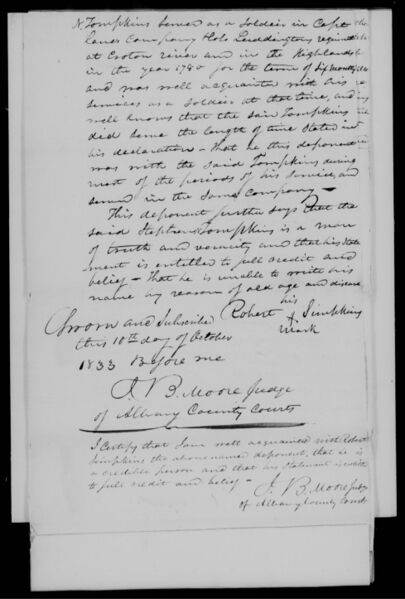 N. Tompkins served as a Soldier in Capt
lanes Company Cols Luddingtons regiment
at Croton river and in the Highlands
in the year 1780 for the term of Six months
and was well acquainted with his
services as a Soldier at that time, and
well knows that the said Tompkins
did serve the length of time stated in
his declaration – that he this deponent
was with the said Tompkins during
most of the periods of his service, and
served in the same company –
This deponent further says that the
said Stephen N Tompkins is a man
of truth and veracity and that his state
ment is entitled to full credit and
belief – that he is unable to write his
name by reason of old age and disease
Sworn and Subscribed
this 10th day of October
1833 Before me
his
Robert X Simpkins
mark
J. B. Moore Judge
of Albany County Courts
I Certify that I am well acquainted with Robert
Simpkins the above named deponent, that he is
a credible person and that his statement is entitled
to full credit and belief –
J. B. Moore Judge
of Albany County Courts